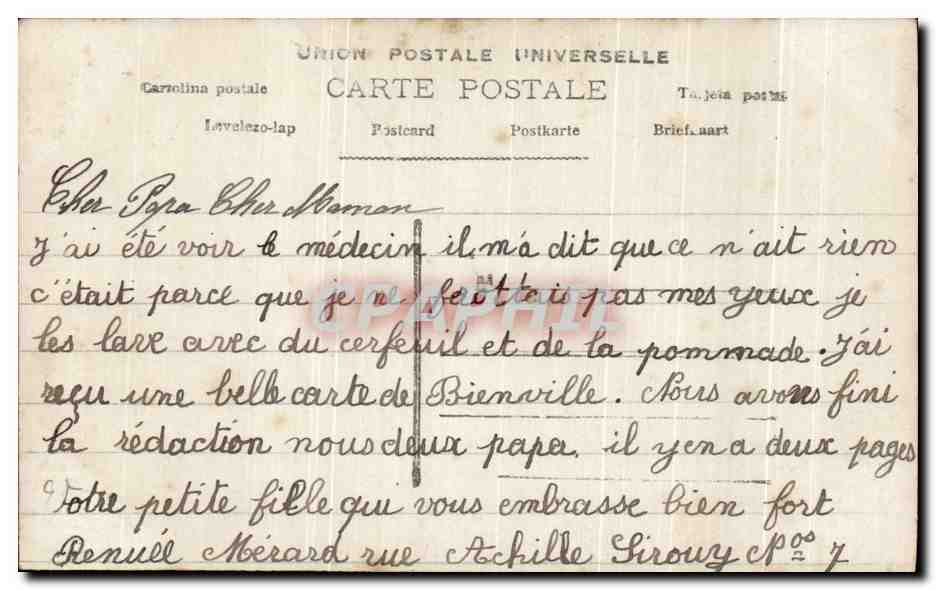 UNION POSTALE UNIVERSELLE
CARTE POSTALE
Cartolina postale
Tarjeta postal
Levelezo-lap
Postcard
Postkarte
Briefkaart
Cher Papa Cher Maman
J'ai été voir le médecin il m'a dit que ce n'ait rien
c'était parce que je ne frottais pas mes yeux je
les lave avec du cerfeuil et de la pommade. J'ai
reçu une belle carte de Bienville. Nous avons fini
la rédaction nous deux papa. il y en a deux pages
Votre petite fille qui vous embrasse bien fort
Mérard rue Achille Sirouy Nos 7
CPAPHIL